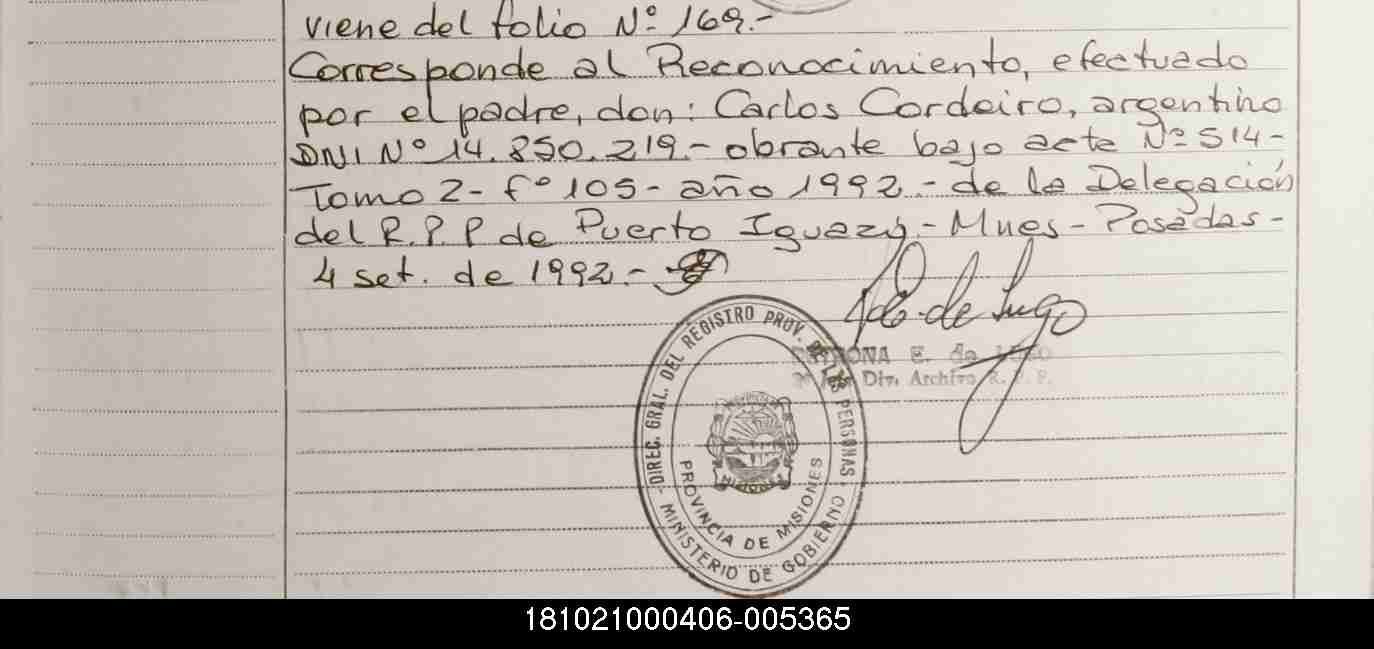 viene del folio Nº 169.-
Corresponde al Reconocimiento, efectuado
por el padre, don: Carlos Cordeiro, argentino
DNI Nº 14.850.219.- obrante bajo acta Nº 514-
Tomo 2- fº 105- año 1992.- de la Delegación
del R.P.P de Puerto Iguazú.- Mnes- Posadas-
4 set. de 1992.-
de Lugo
E. de LUGO
Div. Archivo R. P. P.
DIREC. GRAL. DEL REGISTRO PROV. DE LAS PERSONAS
PROVINCIA DE MISIONES
MINISTERIO DE GOBIERNO
181021000406-005365